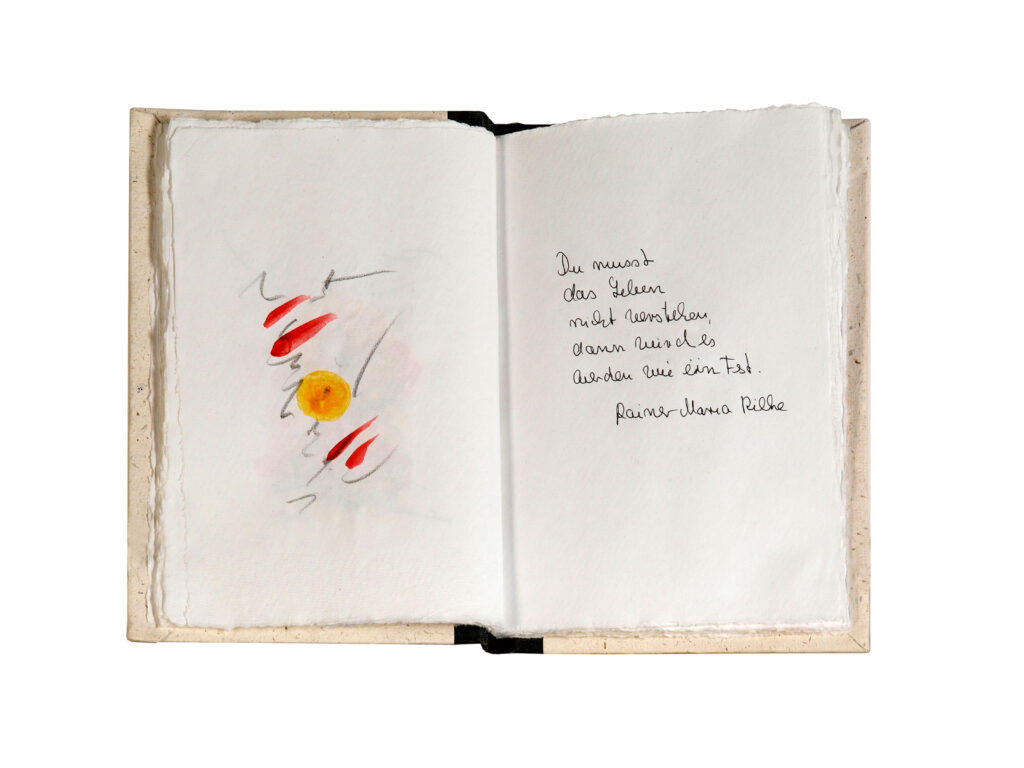 Du musst
das Leben
nicht verstehen,
dann wird es
werden wie ein Fest.
Rainer Maria Rilke